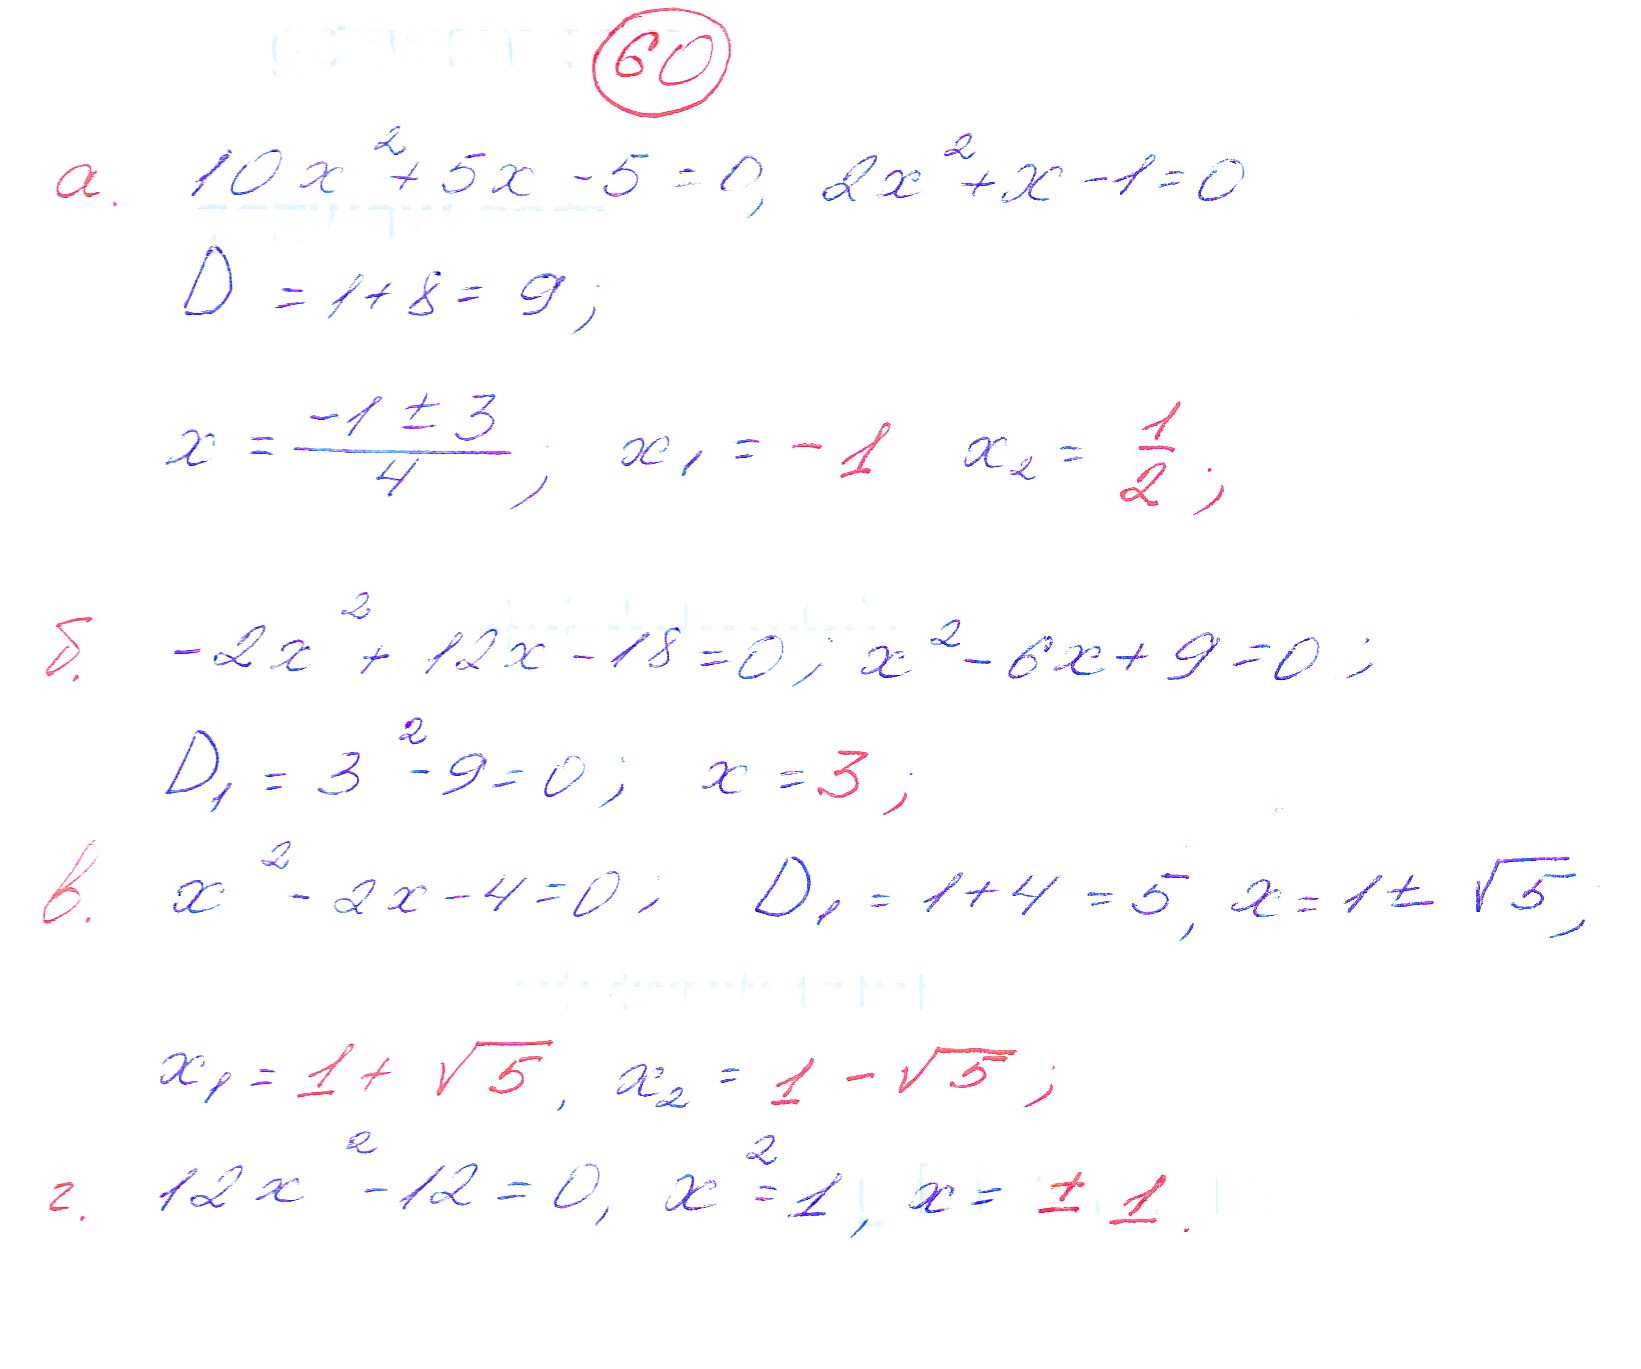 60
а. 10x² + 5x - 5 = 0, 2x² + x - 1 = 0
D = 1 + 8 = 9;
x = (-1 ± 3)/4; x₁ = -1 x₂ = 1/2;
б. -2x² + 12x - 18 = 0; x² - 6x + 9 = 0;
D₁ = 3² - 9 = 0; x = 3;
в. x² - 2x - 4 = 0; D₁ = 1 + 4 = 5, x = 1 ± √5,
x₁ = 1 + √5, x₂ = 1 - √5;
г. 12x² - 12 = 0, x² = 1, x = ± 1.